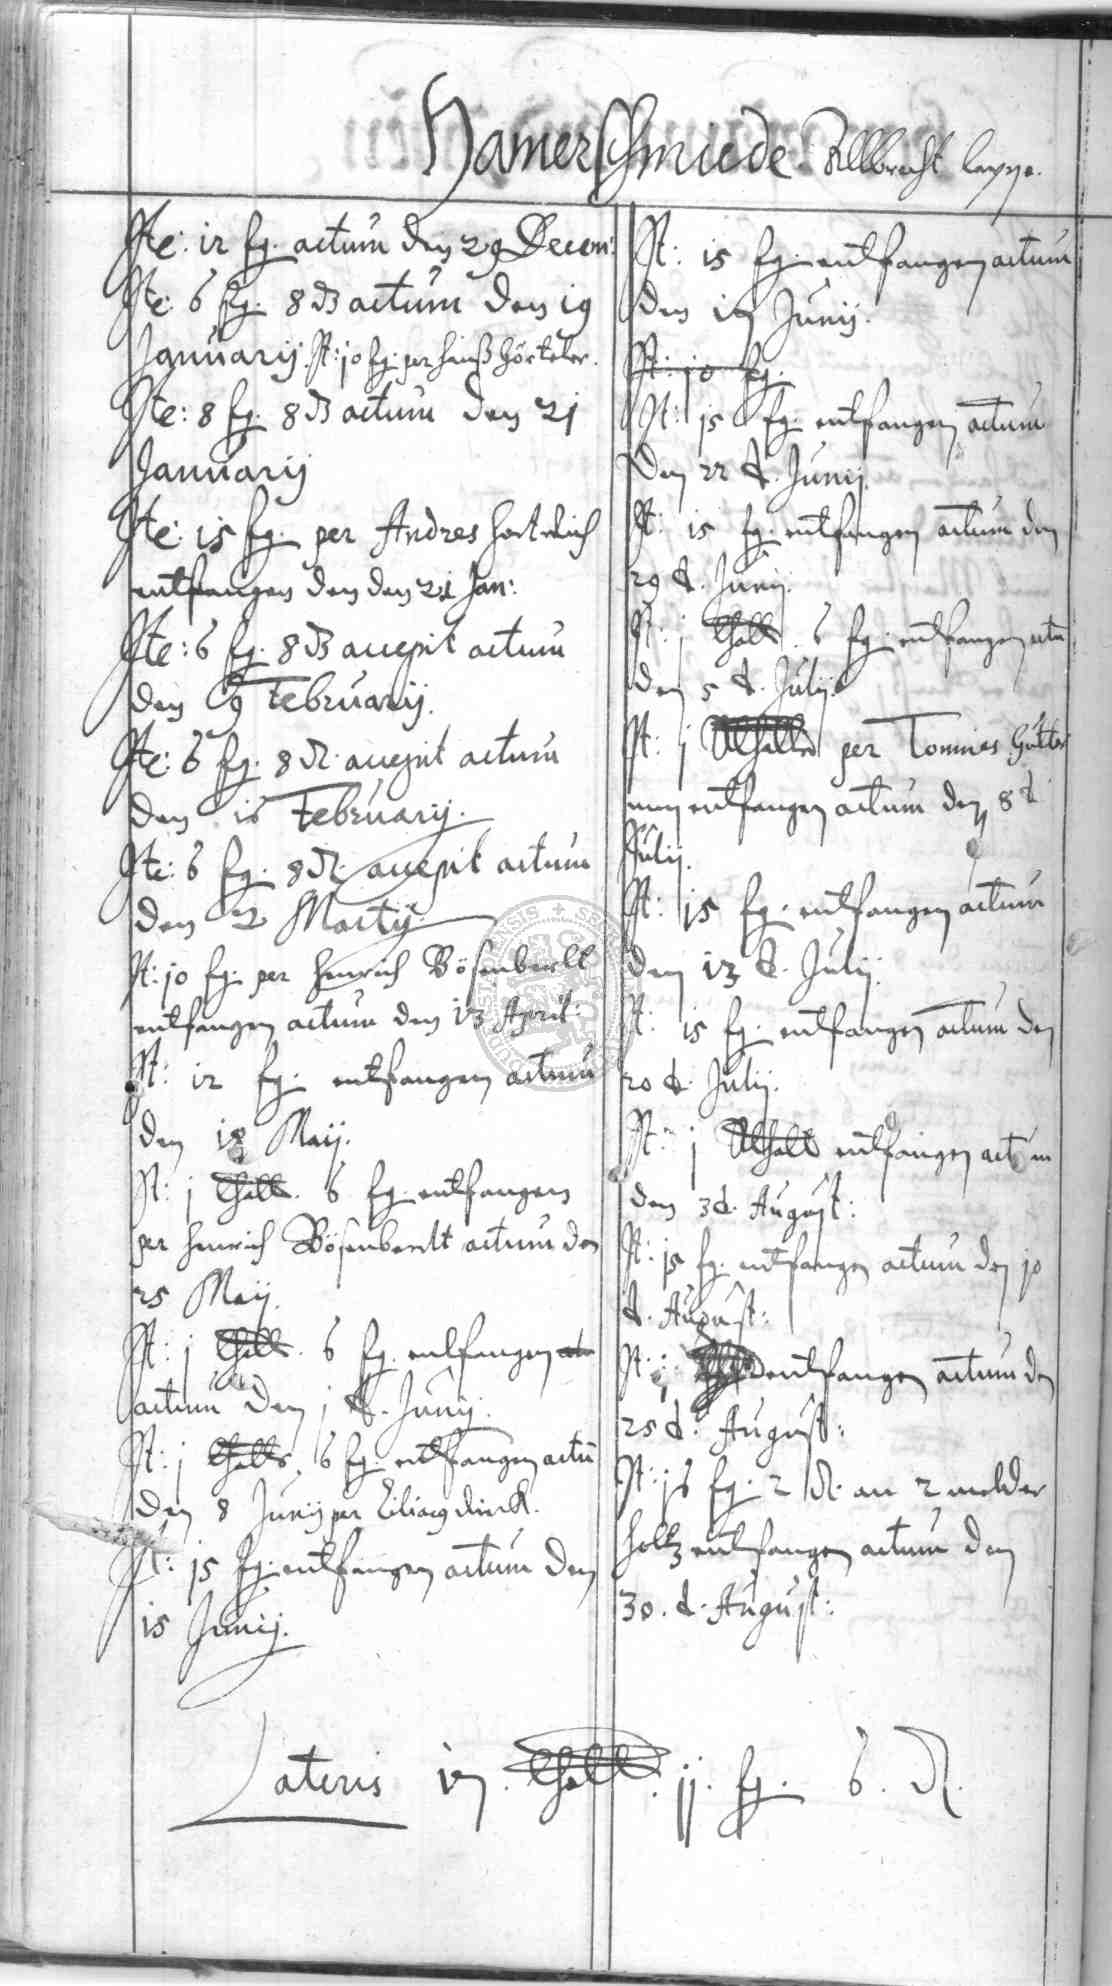 Hamerschmiede. Allbrecht Lappe.
Ite: 12 fg. actum den 29 Decem:
Ite: 6 fg. 8 ₰ actum den 19
Januarij. It: 10 fg. per Hanß
Ite: 8 fg. 8 ₰ actum den 21
Januarij
Ite: 15 fg. per Andres
entfangen den den 21 Jan:
Ite: 6 fg. 8 ₰ accepit actum
den 9 Februarij.
Ite: 6 fg. 8 ₰. accepit actum
den 16 Februarij.
Ite: 6 fg. 8 ₰. accepit actum
den 2 Martij.
It: 10 fg. per Henrich Bösenberll
entfangen actum den 13 April:
It: 12 fg. entfangen actum
den 18 Maij.
It: j thall. 6 fg. entfangen
per Henrich Bösenberllt actum den
25 Maij.
It: j thall. 6 fg. entfangen
actum den j d. Junij.
It: j thall. 6 fg. entfangen actū
den 8 Junij per
It: 15 fg. entfangen actum den
15 Junij.
It: 15 fg. entfangen actum
den 17 Junij.
It: 10 fg.
It: 15 fg. entfangen actum
den 22 d. Junij.
It: 15 fg. entfangen actum den
29 d. Junij.
It: j thall. 6 fg. entfangen
den 5 d. Julij
It: j thaller per Tonnies Götter
man entfangen actum den 8 d
Julij.
It: 15 fg. entfangen actum
den 13 d. Julij.
It: 15 fg. entfangen actum den
20 d. Julij.
It: j thall entfangen actum
den 3 d. August:
It: 15 fg. entfangen actum den 10
d. August:
It: j entfangen actum den
25 d. August:
It: 16 fg. 2 ₰. an 2 molder
holtz entfangen actum den
30. d. August:
Lateris 17. thall. jj. fg. 6. ₰.